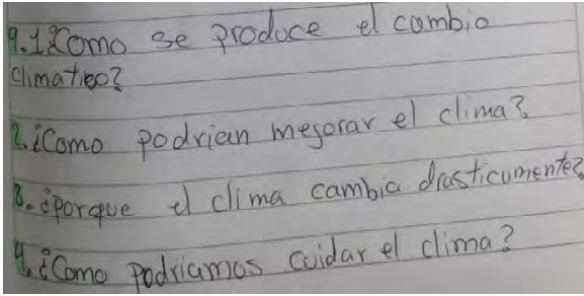 9.1¿Como se produce el cambio
climatico?
2.¿Como podrian mejorar el clima?
3.¿porque el clima cambia drasticumente?
4.¿Como podriamos cuidar el clima?